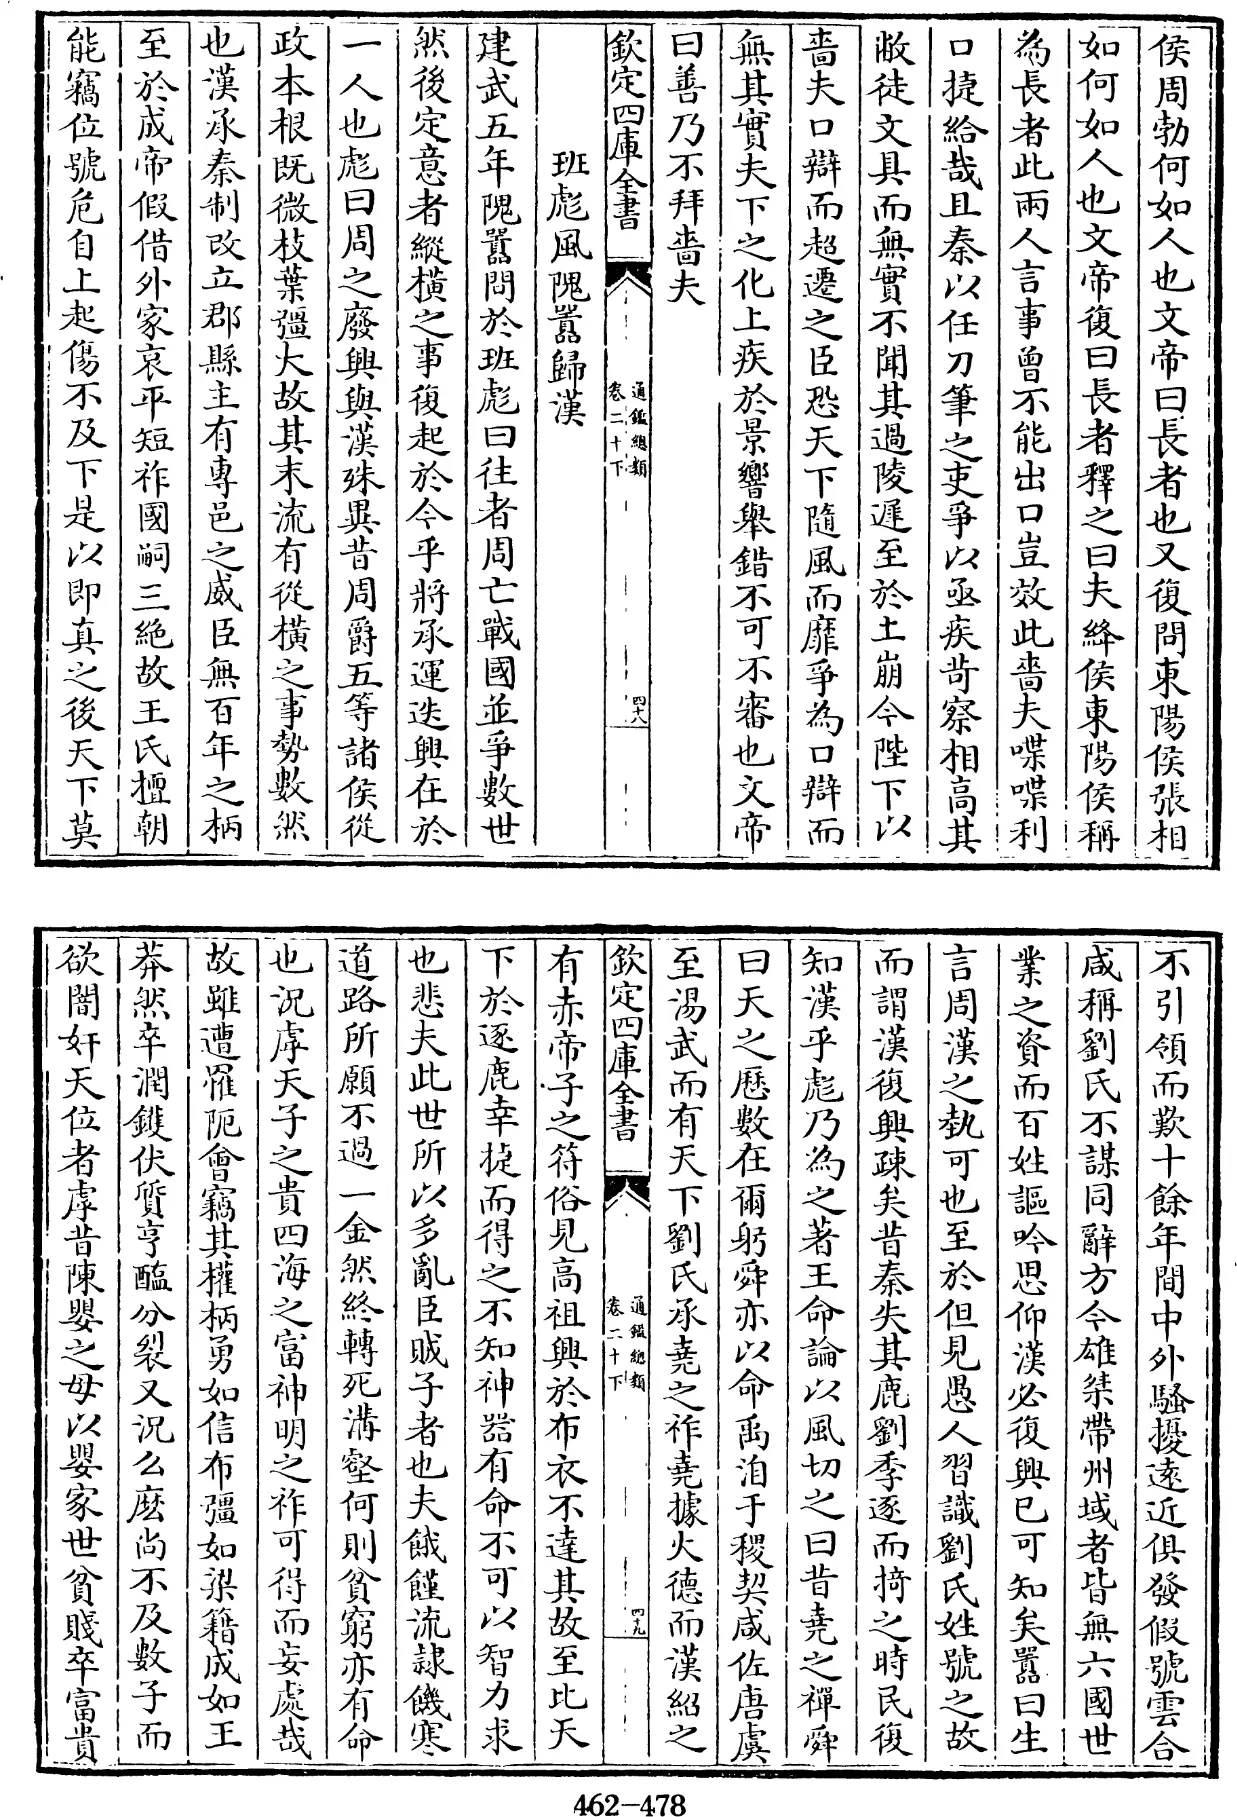 侯周勃何如人也文帝曰長者也又復問東陽侯張相
如何如人也文帝復曰長者釋之曰夫絳侯東陽侯稱
為長者此兩人言事曾不能出口豈效此嗇夫喋喋利
口捷給哉且秦以任刀筆之吏爭以亟疾苛察相高其
敝徒文具而無實不聞其過陵遲至於土崩今陛下以
嗇夫口辯而超遷之臣恐天下隨風而靡爭為口辯而
無其實夫下之化上疾於景響舉錯不可不審也文帝
曰善乃不拜嗇夫
欽定四庫全書
通鑑總類
卷二十下
四十八
班彪風隗囂歸漢
建武五年隗囂問於班彪曰往者周亡戰國並爭數世
然後定意者縱橫之事復起於今乎將承運迭興在於
一人也彪曰周之廢興與漢殊異昔周爵五等諸侯從
政本根既微枝葉彊大故其末流有從橫之事勢數然
也漢承秦制改立郡縣主有專邑之威臣無百年之柄
至於成帝假借外家哀平短祚國嗣三絕故王氏擅朝
能竊位號危自上起傷不及下是以即真之後天下莫
不引領而歎十餘年間中外騷擾遠近俱發假號雲合
咸稱劉氏不謀同辭方今雄桀帶州域者皆無六國世
業之資而百姓謳吟思仰漢必復興已可知矣囂曰生
言周漢之埶可也至於但見愚人習識劉氏姓號之故
而謂漢復興疎矣昔秦失其鹿劉季逐而掎之時民復
知漢乎彪乃為之著王命論以風切之曰昔堯之禪舜
曰天之歷數在爾躬舜亦以命禹洎于稷契咸佐唐虞
至湯武而有天下劉氏承堯之祚堯據火德而漢紹之
欽定四庫全書
通鑑總類
卷二十下
四十九
有赤帝子之符俗見高祖興於布衣不達其故至比天
下於逐鹿幸捷而得之不知神器有命不可以智力求
也悲夫此世所以多亂臣賊子者也夫餓饉流隸饑寒
道路所願不過一金然終轉死溝壑何則貧窮亦有命
也況虖天子之貴四海之富神明之祚可得而妄處哉
故雖遭罹阨會竊其權柄勇如信布彊如梁籍成如王
莽然卒潤鑊伏質亨醢分裂又況么麽尚不及數子而
欲闇奸天位者虖昔陳嬰之母以嬰家世貧賤卒富貴
462-478